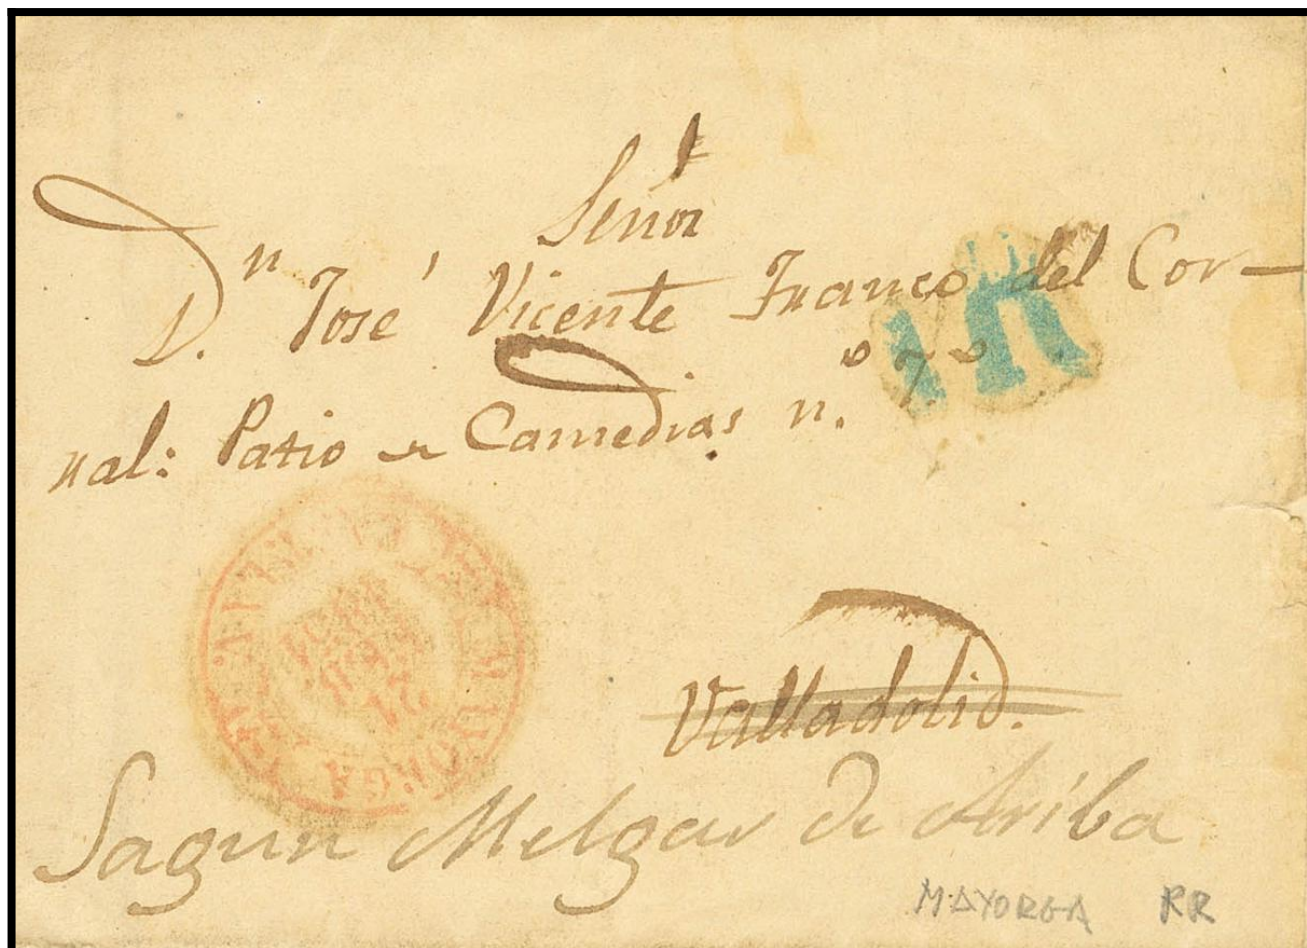 Señor
Dn. José Vicente Franco del Cor-
ral: Patio de Comedias n.º 7º
1R
Valladolid.
Sagun Melgar de Ariba
MAYORGA RR